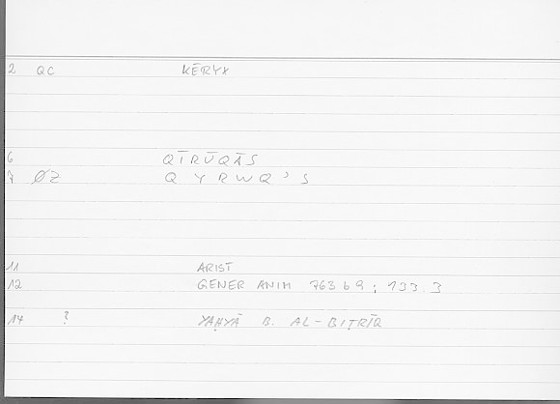 2 QC KĒRYX
6 QĪRŪQĀS
7 ØZ Q Y R W Q ' S
11 ARIST
12 GENER ANIM 763 b 9 ; 133.3
17 ? YAḤYĀ B. AL-BIṬRĪQ